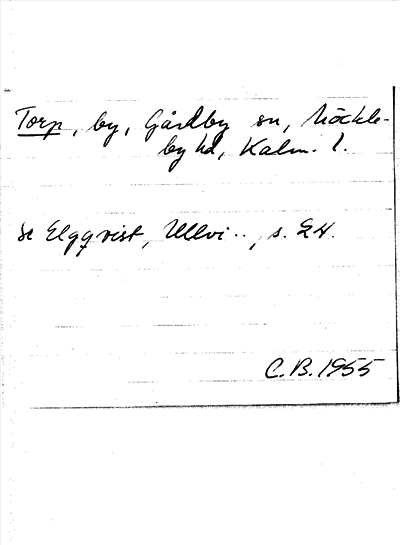 Torp, by, Gårdby sn, Möckle-
by hd, Kalm. l.
Se Elgqvist, Ullvi.., s. 24.
C.B. 1955